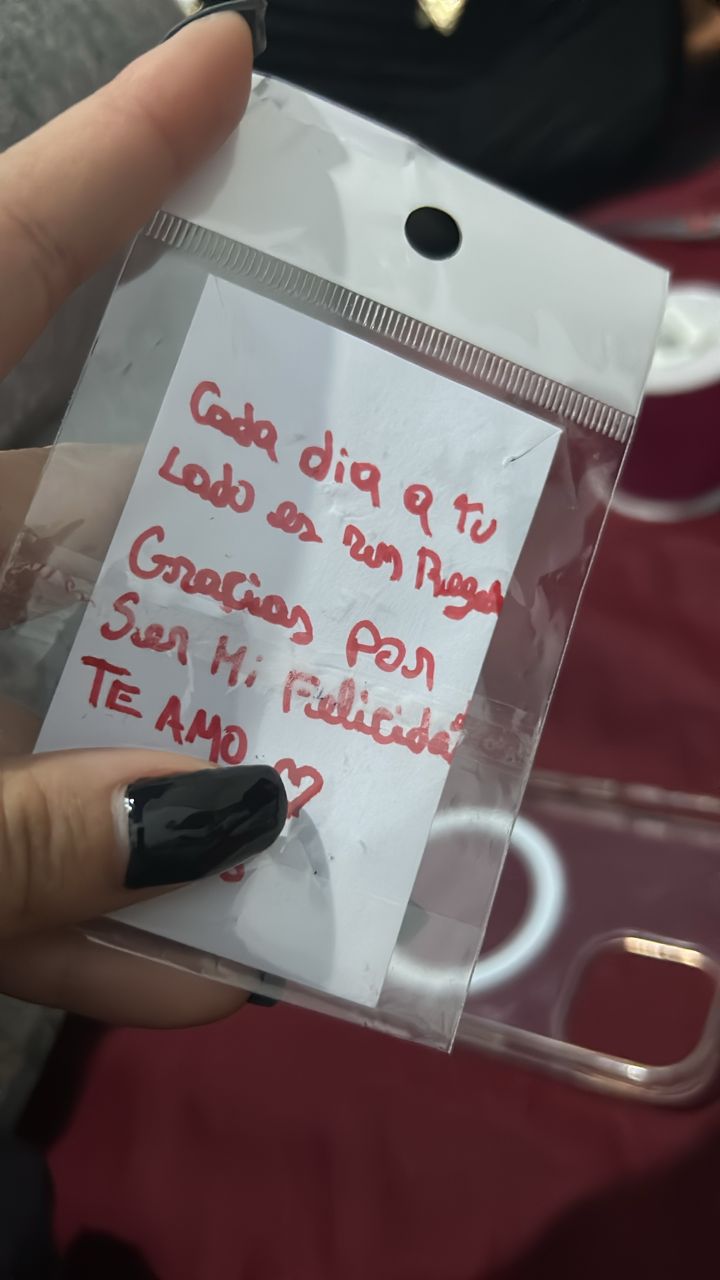 Cada dia a tu
Lado es un Regalo
Gracias por
Ser Mi Felicidad
TE AMO ♡